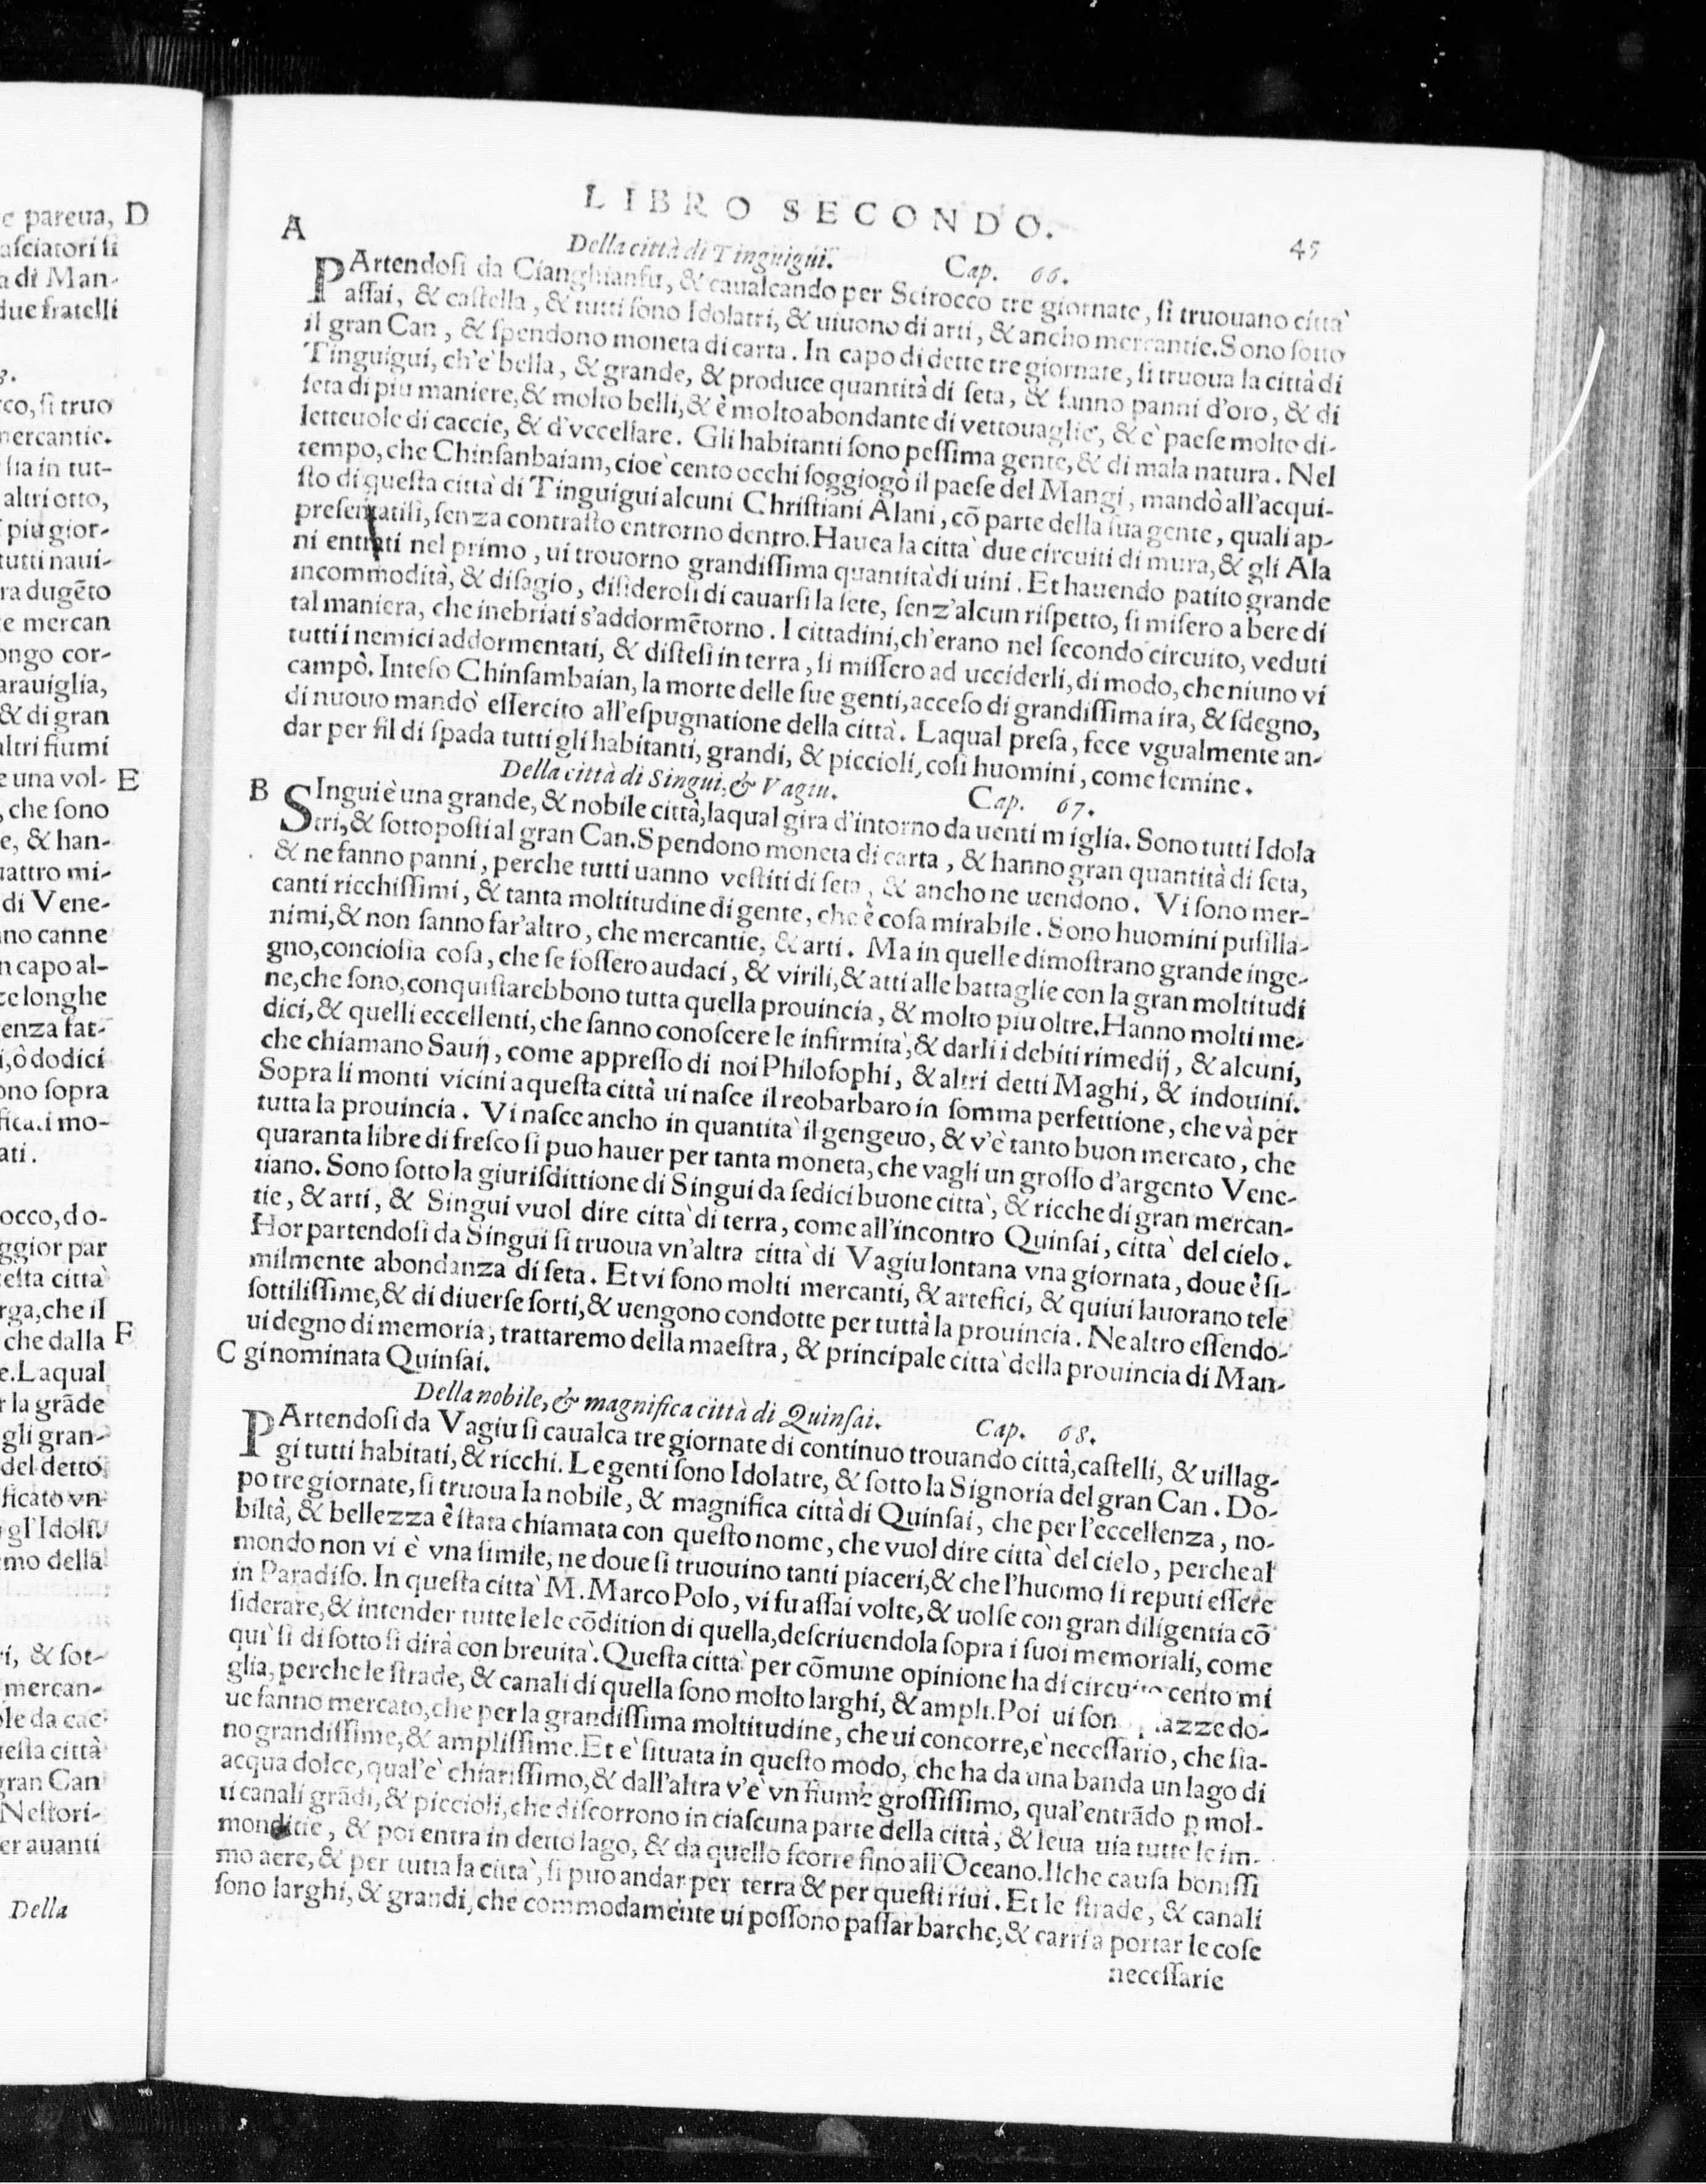 e pareua, D
asciatori si
a di Man-
due fratelli
co, si truo
mercantie.
sia in tut-
altri otto,
piu gior-
tutti naui-
ra dugẽto
e mercan
ongo cor-
arauiglia,
& di gran
altri fiumi
e una vol- E
, che sono
e, & han-
uattro mi-
di Vene-
no canne
n capo al-
ze longhe
enza fat-
i, ò dodici
ono sopra
ficati mo-
ati.
occo, do-
ggior par
esta città
rga, che il
che dalla F
e. Laqual
r la grãde
gli gran-
del detto
ficato vn
gl'Idoli.
emo della
ri, & sot-
mercan-
ole da cac-
uesta città
gran Can
Nestori-
er auanti
Della
LIBRO SECONDO.
45
A
Della città di Tinguigui. Cap. 66.
PArtendosi da Cianghianfu, & caualcando per Scirocco tre giornate, si truouano citta`
assai, & castella, & tutti sono Idolatri, & uiuono di arti, & ancho mercantie. Sono sotto
il gran Can, & spendono moneta di carta. In capo di dette tre giornate, si truoua la città di
Tinguigui, ch'e` bella, & grande, & produce quantità di seta, & fanno panni d'oro, & di
seta di piu maniere, & molto belli, & è molto abondante di vettouaglie, & e` paese molto di-
letteuole di caccie, & d'vccellare. Gli habitanti sono pessima gente, & di mala natura. Nel
tempo, che Chinsanbaiam, cioe` cento occhi soggiogò il paese del Mangi, mandò all'acqui-
sto di questa citta` di Tinguigui alcuni Christiani Alani, cõ parte della sua gente, quali ap-
presentatisi, senza contrasto entrorno dentro. Hauea la citta` due circuiti di mura, & gli Ala
ni entrati nel primo, ui trouorno grandissima quantita` di uini. Et hauendo patito grande
incommodità, & disagio, disiderosi di cauarsi la sete, senz'alcun rispetto, si misero a bere di
tal maniera, che inebriati s'addormẽtorno. I cittadini, ch'erano nel secondo circuito, veduti
tutti i nemici addormentati, & distesi in terra, si missero ad ucciderli, di modo, che niuno vi
campò. Inteso Chinsambaian, la morte delle sue genti, acceso di grandissima ira, & sdegno,
di nuouo mandò essercito all'espugnatione della città. Laqual presa, fece vgualmente an-
dar per fil di spada tutti gli habitanti, grandi, & piccioli, cosi huomini, come femine.
Della città di Singui, & Vagiu. Cap. 67.
B SIngui è una grande, & nobile città, laqual gira d'intorno da uenti miglia. Sono tutti Idola
tri, & sottoposti al gran Can. Spendono moneta di carta, & hanno gran quantità di seta,
& ne fanno panni, perche tutti uanno vestiti di seta, & ancho ne uendono. Vi sono mer-
canti ricchissimi, & tanta moltitudine di gente, che è cosa mirabile. Sono huomini pusilla-
nimi, & non sanno far'altro, che mercantie, & arti. Ma in quelle dimostrano grande inge-
gno, conciosia cosa, che se fossero audaci, & virili, & atti alle battaglie con la gran moltitudi
ne, che sono, conquistarebbono tutta quella prouincia, & molto piu oltre. Hanno molti me-
dici, & quelli eccellenti, che sanno conoscere le infirmita`, & darli i debiti rimedij, & alcuni,
che chiamano Sauij, come appresso di noi Philosophi, & altri detti Maghi, & indouini.
Sopra li monti vicini a questa città ui nasce il reobarbaro in somma perfettione, che và per
tutta la prouincia. Vi nasce ancho in quantita` il gengeuo, & v'è tanto buon mercato, che
quaranta libre di fresco si puo hauer per tanta moneta, che vagli un grosso d'argento Vene-
tiano. Sono sotto la giurisdittione di Singui da sedici buone citta`, & ricche di gran mercan-
tie, & arti, & Singui vuol dire citta` di terra, come all'incontro Quinsai, citta` del cielo.
Hor partendosi da Singui si truoua vn'altra citta` di Vagiu lontana vna giornata, doue è si-
milmente abondanza di seta. Et vi sono molti mercanti, & artefici, & quiui lauorano tele
sottilissime, & di diuerse sorti, & uengono condotte per tutta la prouincia. Ne altro essendo-
ui degno di memoria, trattaremo della maestra, & principale citta` della prouincia di Man-
C gi nominata Quinsai.
Della nobile, & magnifica città di Quinsai. Cap. 68.
PArtendosi da Vagiu si caualca tre giornate di continuo trouando città, castelli, & uillag-
gi tutti habitati, & ricchi. Le genti sono Idolatre, & sotto la Signoria del gran Can. Do-
po tre giornate, si truoua la nobile, & magnifica città di Quinsai, che per l'eccellenza, no-
biltà, & bellezza è stata chiamata con questo nome, che vuol dire citta` del cielo, perche al
mondo non vi è vna simile, ne doue si truouino tanti piaceri, & che l'huomo si reputi essere
in Paradiso. In questa citta` M. Marco Polo, vi fu assai volte, & uolse con gran diligentia cõ
siderare, & intender tutte le le cõdition di quella, descriuendola sopra i suoi memoriali, come
qui` si di sotto si dirà con breuita`. Questa citta` per cõmune opinione ha di circuito cento mi
glia, perche le strade, & canali di quella sono molto larghi, & ampli. Poi ui son azze do-
ue fanno mercato, che per la grandissima moltitudine, che ui concorre, e` necessario, che sia-
no grandissime, & amplissime. Et e` situata in questo modo, che ha da una banda un lago di
acqua dolce, qual'e` chiarissimo, & dall'altra v'e` vn fiume grossissimo, qual'entrãdo p mol-
ti canali grãdi, & piccioli, che discorrono in ciascuna parte della città, & leua uia tutte le im-
monditie, & poi entra in detto lago, & da quello scorre fino all'Oceano. Ilche causa bonissi
mo aere, & per tutta la citta`, si puo andar per terra & per questi riui. Et le strade, & canali
sono larghi, & grandi, che commodamente ui possono passar barche, & carri a portar le cose
necessarie